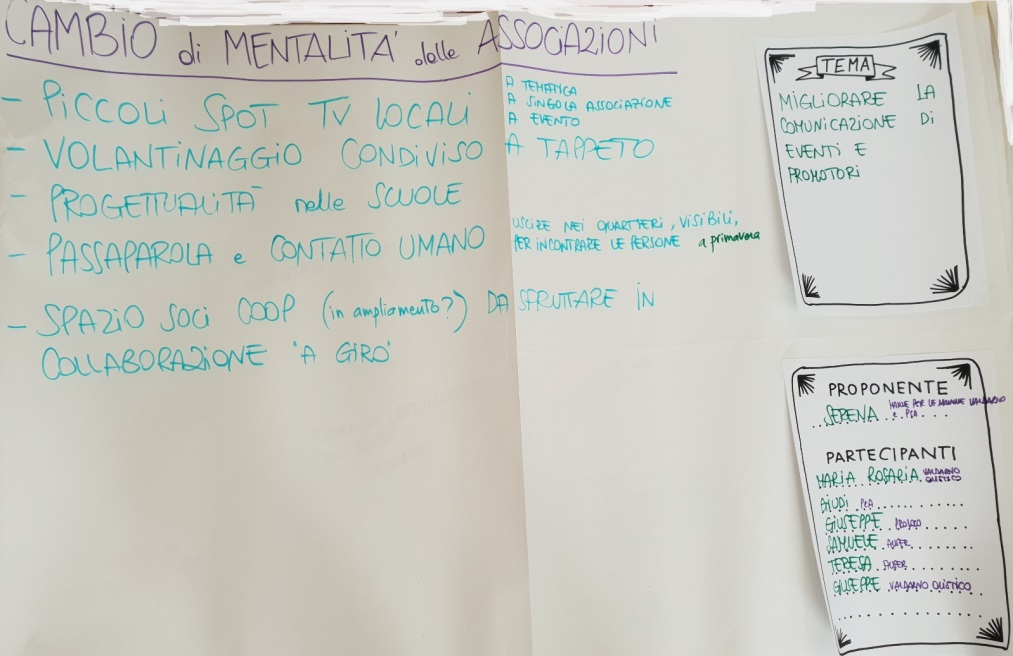 CAMBIO di MENTALITA' delle ASSOCIAZIONI
- PICCOLI SPOT TV LOCALI
A TEMATICA
A SINGOLA ASSOCIAZIONE
A EVENTO
- VOLANTINAGGIO CONDIVISO A TAPPETO
- PROGETTUALITÀ nelle SCUOLE
- PASSAPAROLA e CONTATTO UMANO
USCIRE NEI QUARTIERI, VISIBILI,
PER INCONTRARE LE PERSONE a primavera
- SPAZIO SOCI COOP (in ampliamento?) DA SFRUTTARE IN
COLLABORAZIONE "A GIRO"
TEMA
MIGLIORARE LA
COMUNICAZIONE DI
EVENTI E
PROMOTORI
PROPONENTE
SERENA MAMME PER LE MAMME VALDARNO
E PCA
PARTECIPANTI
MARIA ROSARIA VALDARNO
OLISTICO
GIUDI PCA
GIUSEPPE PROLOCO
SAMUELE AUSER
TERESA AUSER
GIUSEPPE VALDARNO OLISTICO